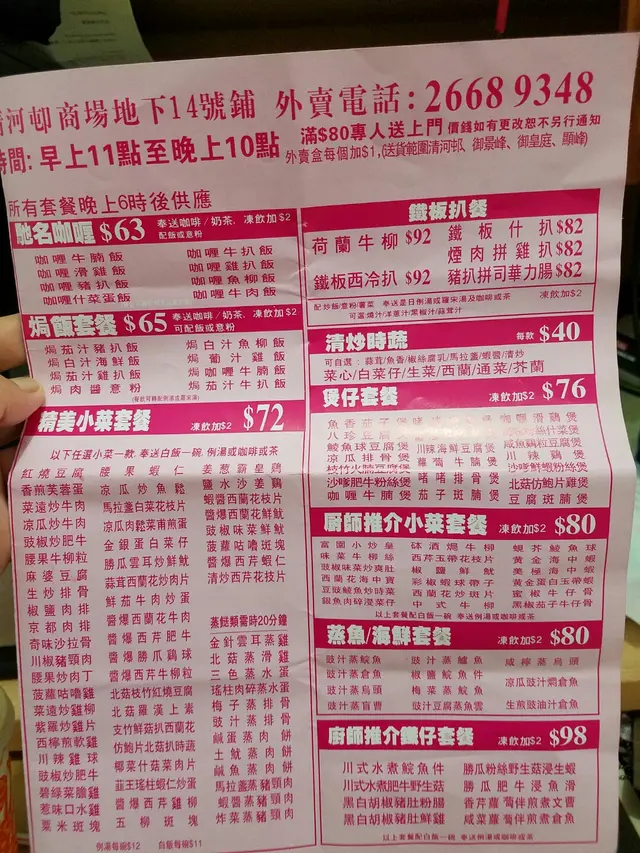 河邨商場地下14號鋪 外賣電話：2668 9348
時間: 早上11點至晚上10點
滿$80專人送上門 價錢如有更改恕不另行通知
外賣盒每個加$1,(送貨範圍清河邨、御景峰、御皇庭、顯峰)
所有套餐晚上6時後供應
馳名咖喱 $63 奉送咖啡/奶茶, 凍飲加$2
配飯或意粉
咖喱牛腩飯 咖喱牛扒飯
咖喱滑雞飯 咖喱雞扒飯
咖喱豬扒飯 咖喱魚柳飯
咖喱什菜飯 咖喱牛肉飯
焗飯套餐 $65 奉送咖啡/奶茶, 凍飲加$2
可配飯或意粉
焗茄汁豬扒飯 焗白汁魚柳飯
焗白汁海鮮飯 焗葡汁雞飯
焗茄汁雞扒飯 焗咖喱牛腩飯
焗肉醬意粉 焗茄汁牛扒飯
精美小菜套餐 凍飲加$2 $72
以下任選小菜一款, 奉送白飯一碗, 例湯或咖啡或茶
紅燒豆腐 腰果蝦仁 姜葱霸皇雞
香煎芙蓉蛋 涼瓜炒魚鬆 鹽水沙姜雞
菜遠炒牛肉 馬拉盞白菜花枝片 蝦醬西蘭花枝片
涼瓜炒牛肉 涼瓜肉鬆菜甫煎蛋 醬爆西蘭花鮮魷
豉椒炒肥牛 金銀蛋白菜仔 豉椒味菜鮮魷
腰果牛柳粒 勝瓜雲耳炒鮮魷 菠蘿咕嚕斑塊
麻婆豆腐 蒜茸西蘭花炒肉片 醬爆西芹蝦仁
生炒排骨 鮮茄牛肉炒蛋 清炒西芹花枝片
椒鹽肉排 醬爆西蘭花牛肉
京都肉排 醬爆西芹肥牛 蒸餸類需時20分鐘
奇味沙拉骨 醬爆勝瓜雞球 金針雲耳蒸雞
川椒豬頸肉 醬爆西芹牛柳粒 北菇蒸滑雞
腰果炒肉丁 北菇枝竹紅燒豆腐 三色蒸水蛋
菠蘿咕嚕雞 北菇羅漢上素 瑤柱肉碎蒸水蛋
菜遠炒雞柳 支竹鮮菇扒西蘭花 梅子蒸排骨
紫蘿炒雞片 仿鮑片北菇扒時蔬 豉汁蒸排骨
西檸煎軟雞 椰菜什菇菜肉片 鹹蛋蒸肉餅
川辣雞球 韮王瑤柱蝦仁炒蛋 土魷蒸肉餅
豉椒炒肥牛 醬爆西芹雞柳 鹹魚蒸肉餅
碧綠菜膽雞 五柳斑塊 馬拉盞蒸豬頸肉
惹味口水雞 蝦醬蒸豬頸肉
粟米斑塊 炸菜蒸豬頸肉
例湯每碗$12 白飯每碗$11
鐵板扒餐
荷蘭牛柳 $92 鐵板什扒 $82
煙肉拼雞扒 $82
鐵板西冷扒 $92 豬扒拼司華力腸 $82
配炒飯/意粉/薯菜 奉送是日例湯或羅宋湯及咖啡或茶 凍飲加$2
可選:燒汁/洋蔥汁/黑椒汁/蒜茸汁
清炒時蔬 每款 $40
可自選: 蒜茸/魚香/椒絲腐乳/馬拉盞/蝦醬/清炒
菜心/白菜仔/生菜/西蘭/通菜/芥蘭
煲仔套餐 凍飲加$2 $76
魚香茄子煲 咖喱滑雞煲
八珍豆腐煲
鯪魚球豆腐煲 川辣海鮮豆腐煲 咸魚雞粒豆腐煲
涼瓜排骨煲 蘿蔔牛腩煲 川辣雞煲
枝竹火腩豆腐煲 沙嗲鮮蝦粉絲煲
沙嗲肥牛粉絲煲 啫啫排骨煲 北菇仿鮑片雞煲
咖喱牛腩煲 茄子斑腩煲 豆腐斑腩煲
廚師推介小菜套餐 凍飲加$2 $80
富園小炒皇 砵酒焗牛柳 蜆芥鯪魚球
味菜牛柳絲 西芹玉帶花枝片 黃金海中蝦
豉椒味菜炒爽肚 椒鹽鮮魷 美極海中蝦
西蘭花海中寶 彩椒蝦球帶子 黃金蛋白玉帶蝦
豆豉鯪魚炒時菜 西蘭花炒斑片 蜜椒牛仔骨
銀魚肉碎浸菜仔 中式牛柳 黑椒茄子牛仔骨
以上套餐配白飯一碗 奉送例湯或咖啡或茶
蒸魚/海鮮套餐 凍飲加$2 $80
豉汁蒸鯇魚 豉汁蒸鱸魚 咸檸蒸烏頭
豉汁蒸倉魚 椒鹽鯇魚件 涼瓜豉汁燜倉魚
豉汁蒸烏頭 梅菜蒸鯇魚
豉汁蒸盲曹 豉汁豆腐蒸魚雲 生煎豉油汁倉魚
廚師推介鑊仔套餐 凍飲加$2 $98
川式水煮鯇魚件 勝瓜粉絲野生菇浸生蝦
川式水煮肥牛野生菇 勝瓜肥牛浸魚滑
黑白胡椒豬肚粉腸 香芹蘿蔔伴煎煮文曹
黑白胡椒豬肚鮮雞 咸菜蘿蔔伴煎煮倉魚
以上套餐配白飯一碗 奉送例湯或咖啡或茶